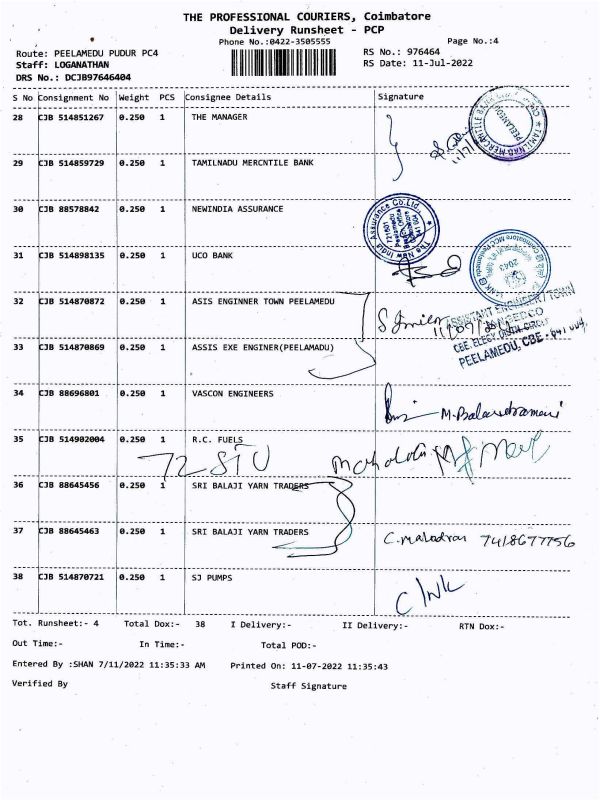 THE PROFESSIONAL COURIERS, Coimbatore
Delivery Runsheet - PCP
Phone No.:0422-3505555
Page No.:4
Route: PEELAMEDU PUDUR PC4
RS No.: 976464
Staff: LOGANATHAN
RS Date: 11-Jul-2022
DRS No.: DCJB97646404
S No Consignment No Weight PCS Consignee Details Signature
28 CJB 514851267 0.250 1 THE MANAGER
29 CJB 514859729 0.250 1 TAMILNADU MERCNTILE BANK
30 CJB 88578842 0.250 1 NEWINDIA ASSURANCE
31 CJB 514898135 0.250 1 UCO BANK
32 CJB 514870872 0.250 1 ASIS ENGINNER TOWN PEELAMEDU
ASSISTANT ENGINEER / TOWN
33 CJB 514870869 0.250 1 ASSIS EXE ENGINER(PEELAMADU)
PEELAMEDU, CBE - 641 004.
34 CJB 88696801 0.250 1 VASCON ENGINEERS
35 CJB 514902004 0.250 1 R.C. FUELS
36 CJB 88645456 0.250 1 SRI BALAJI YARN TRADERS
37 CJB 88645463 0.250 1 SRI BALAJI YARN TRADERS
7418677756
38 CJB 514870721 0.250 1 SJ PUMPS
Tot. Runsheet:- 4 Total Dox:- 38 I Delivery:- II Delivery:- RTN Dox:-
Out Time:- In Time:- Total POD:-
Entered By :SHAN 7/11/2022 11:35:33 AM Printed On: 11-07-2022 11:35:43
Verified By Staff Signature